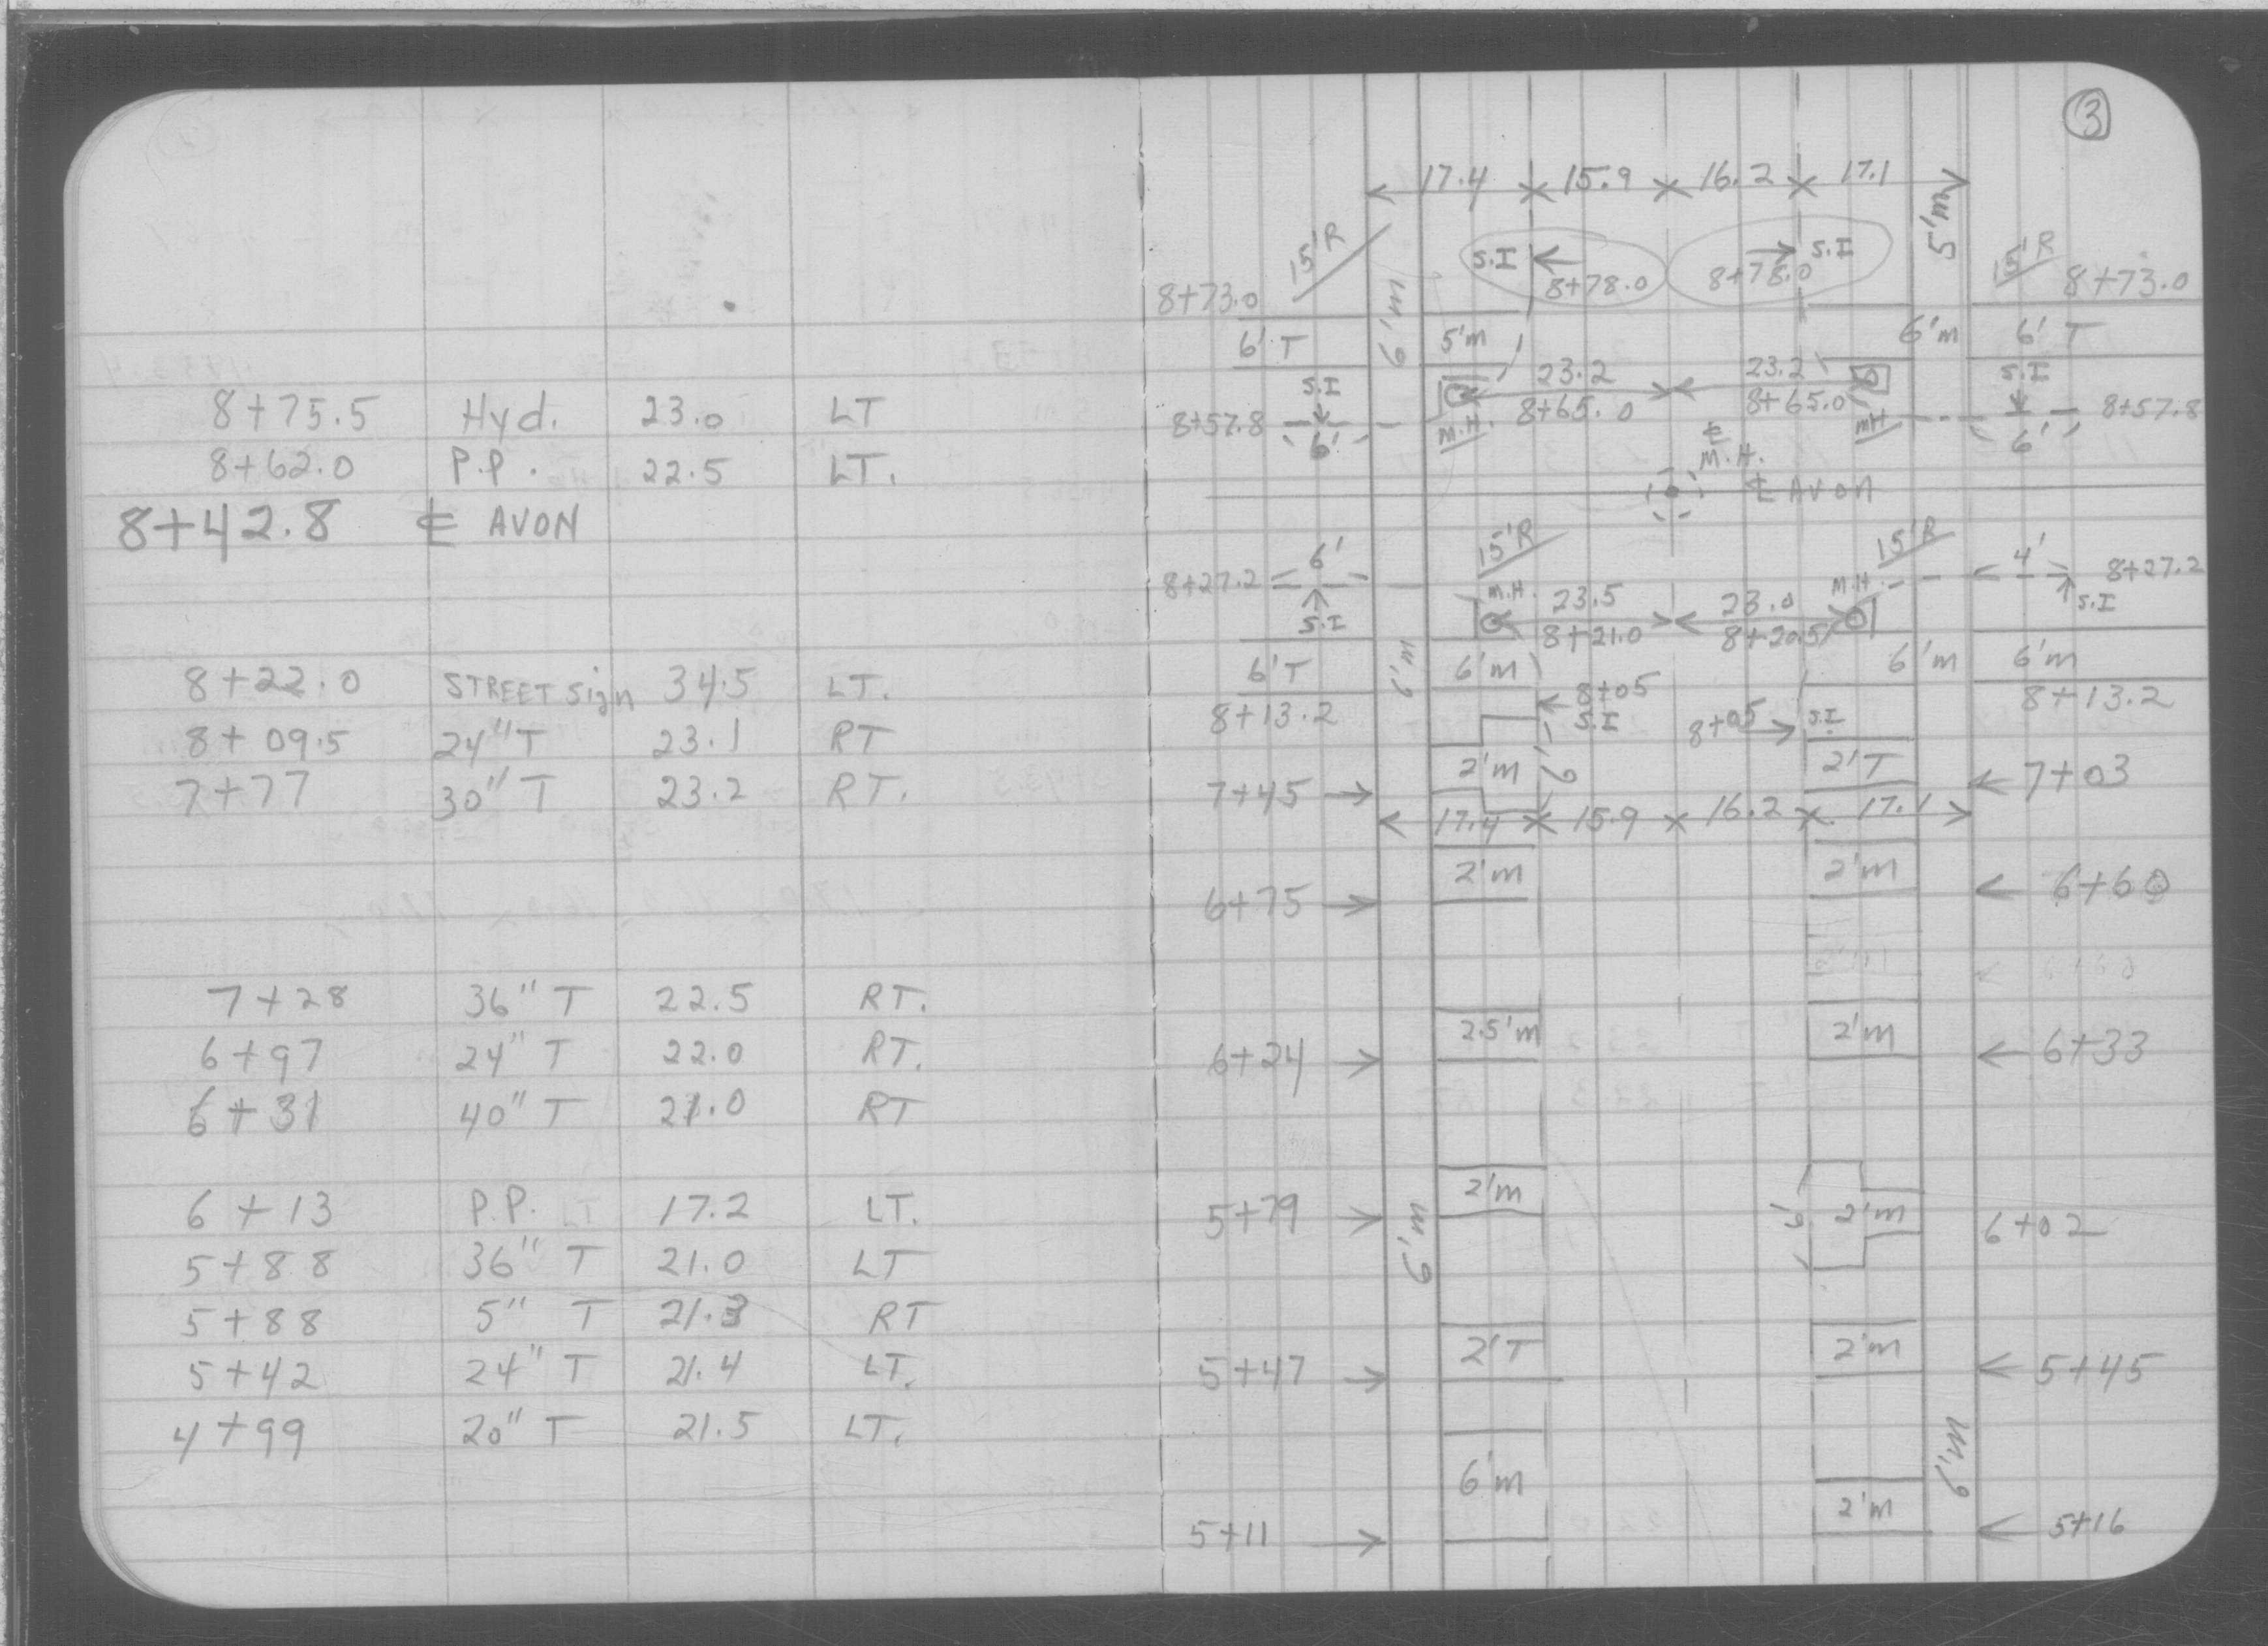 8+75.5 Hyd. 23.0 LT
8+62.0 P.P. 22.5 LT.
8+42.8 ℄ AVON
8+22.0 STREET Sign 34.5 LT.
8+09.5 24" T 23.1 RT
7+77 30" T 23.2 RT.
7+28 36" T 22.5 RT.
6+97 24" T 22.0 RT.
6+31 40" T 21.0 RT
6+13 P.P. LT 17.2 LT.
5+88 36" T 21.0 LT
5+88 5" T 21.3 RT
5+42 24" T 21.4 LT.
4+99 20" T 21.5 LT.
3
17.4 15.9 16.2 17.1
5'm
15'R S.I S.I 15'R
8+73.0 6'm 8+78.0 8+78.0 8+73.0
6' T 5'm 6'm 6' T
S.I 23.2 23.2 S.I
8+57.8 6' M.H. 8+65.0 8+65.0 MH 6' 8+57.8
℄ M.H.
℄ AVON
6' 15'R 15'R 4'
8+27.2 M.H. M.H. 8+27.2
S.I 23.5 23.0 S.I
8+21.0 8+20.5
6' T 6'm 6'm 6'm 6'm
8+13.2 8+05 S.I 8+05 S.I 8+13.2
7+45 2'm 6' 2'T 7+03
17.4 15.9 16.2 17.1
6+75 2'm 2'm 6+60
6+24 2.5'm 2'm 6+33
5+79 6'm 2'm 6' 2'm 6+02
5+47 2'T 2'm 5+45
6'm 6'm
5+11 2'm 5+16